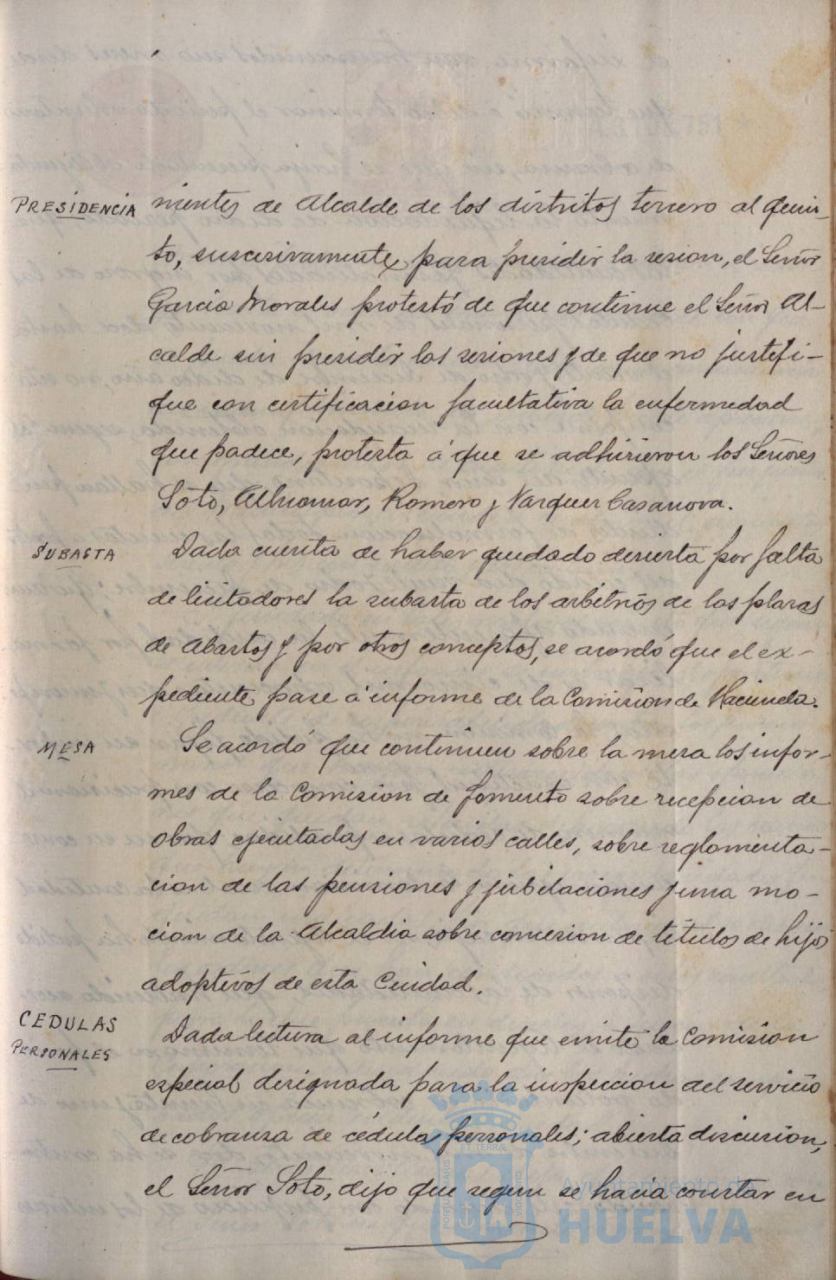 PRESIDENCIA
nientes de Alcalde de los distritos tercero al quin-
to, suscesivamente, para presidir la sesion, el Señor
Garcia Morales protestó de que continue el Señor Al-
calde sin presidir las sesiones y de que no justifi-
que con certificacion facultativa la enfermedad
que padece, protesta á que se adhirieron los Señores
Soto, Albiamar, Romero y Vazquez Casanova.
SUBASTA
Dada cuenta de haber quedado desierta por falta
de licitadores la subasta de los arbitrios de las plazas
de Abastos y por otros conceptos, se acordó que el ex-
pediente pase á informe de la Comision de Hacienda.
MESA
Se acordó que continuen sobre la mesa los infor-
mes de la Comision de fomento sobre recepcion de
obras ejecutadas en varias calles, sobre reglamenta-
cion de las pensiones y jubilaciones y una mo-
cion de la Alcaldia sobre concesion de títulos de hijos
adoptivos de esta Ciudad.
CEDULAS
PERSONALES
Dada lectura al informe que emite la Comision
especial designada para la inspeccion del servicio
de cobranza de cédula personales; abierta discusion,
el Señor Soto, dijo que segun se hacia constar en
Ayuntamiento de
HUELVA